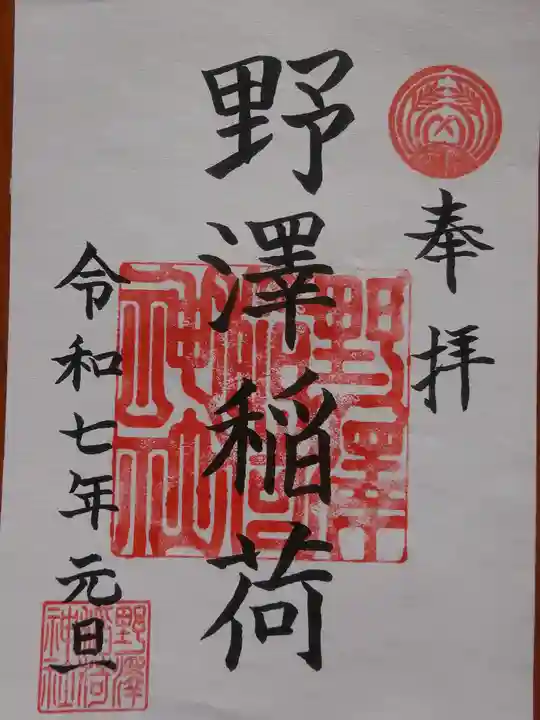 奉拝
野澤稲荷
令和七年元旦
野澤
稲荷
神社
野澤
稲荷
神社